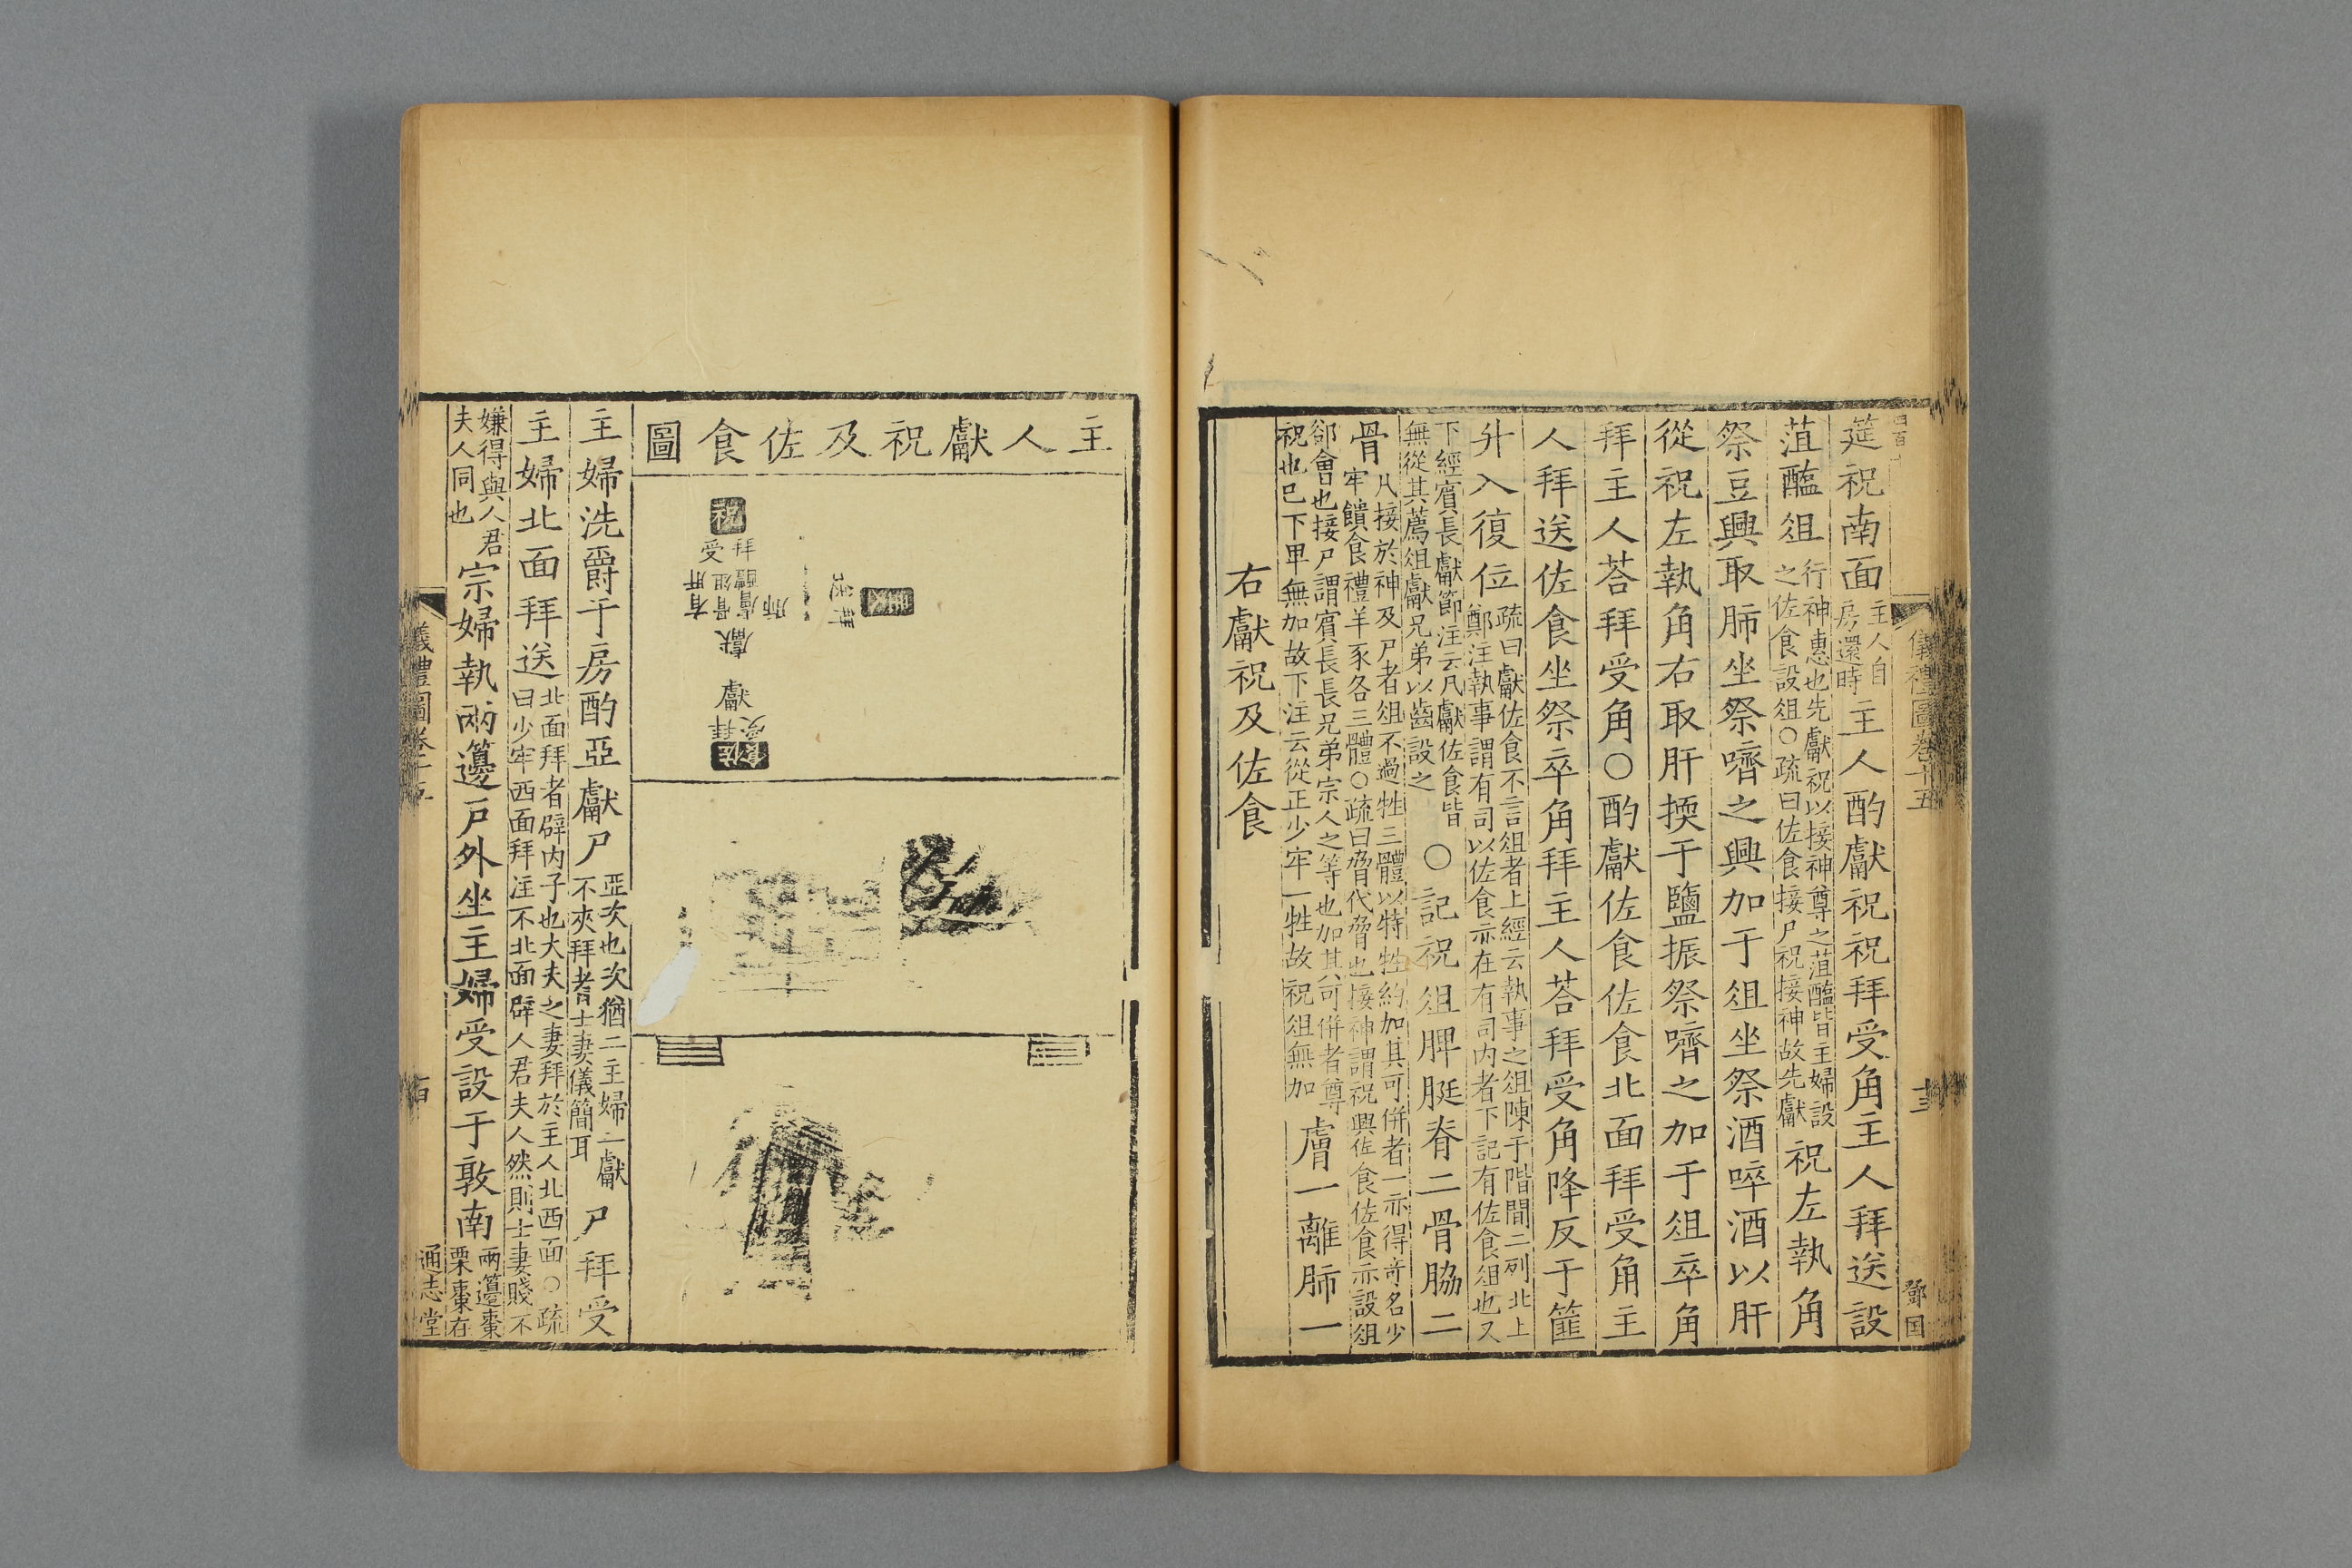 筵祝南面主人自房還時主人酌獻祝祝拜受角主人拜送設
菹醢俎行神惠也先獻祝以接神尊之菹醢皆主婦設之佐食設俎○疏曰佐食接尸祝接神故先獻祝左執角
祭豆興取肺坐祭嚌之興加于俎坐祭酒啐酒以肝
從祝左執角右取肝㨎于鹽振祭嚌之加于俎卒角
拜主人荅拜受角○酌獻佐食佐食北面拜受角主
人拜送佐食坐祭卒角拜主人荅拜受角降反于篚
升入復位疏曰獻佐食不言俎者上經云執事之俎陳于階間二列北上鄭注執事謂有司以佐食亦在有司内者下記有佐食俎也又
下經賓長獻節注云凡獻佐食皆無從其薦俎獻兄弟以齒設之○記祝俎脾脡脊二骨脇二
骨凡接於神及尸者俎不過牲三體以特牲約加其可併者一亦得奇名少牢饋食禮羊豕各三體○疏曰脅代脅也接神謂祝興佐食佐食亦設俎
郤會也接尸謂賓長長兄弟宗人之等也加其可併者尊祝也已下卑無加故下注云從正少牢一牲故祝俎無加膚一離肺一
右獻祝及佐食
儀禮圖卷十五
十三
鄧国
主人獻祝及佐食圖
祝
拜受
醢
俎骨膚肺
肝右
獻
獻
拜受
佐食
拜
主婦洗爵于房酌亞獻尸亞次也次猶二主婦二獻不夾拜者士妻儀簡耳尸拜受
主婦北面拜送北面拜者辟内子也大夫之妻拜於主人北西面○疏曰少牢西面拜注不北面辟人君夫人然則士妻賤不
嫌得與人君夫人同也宗婦執兩籩戶外坐主婦受設于敦南兩籩棗栗棗在
儀禮圖卷十五
通志堂